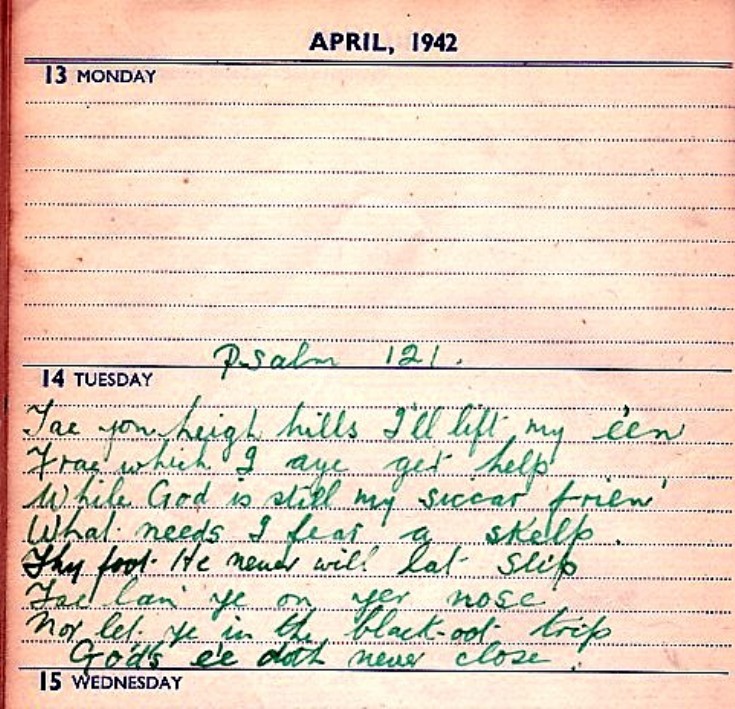 APRIL, 1942
13 MONDAY
Psalm 121.
14 TUESDAY
Tae yon heigh hills I'll lift my een
Frae which I aye get help
While God is still my siccar frien'
What needs I fear a skelp.
Thy foot He never will lat slip
Tae lan' ye on yer nose
Nor let ye in the black-oot trip
God's ee doth never close.
15 WEDNESDAY